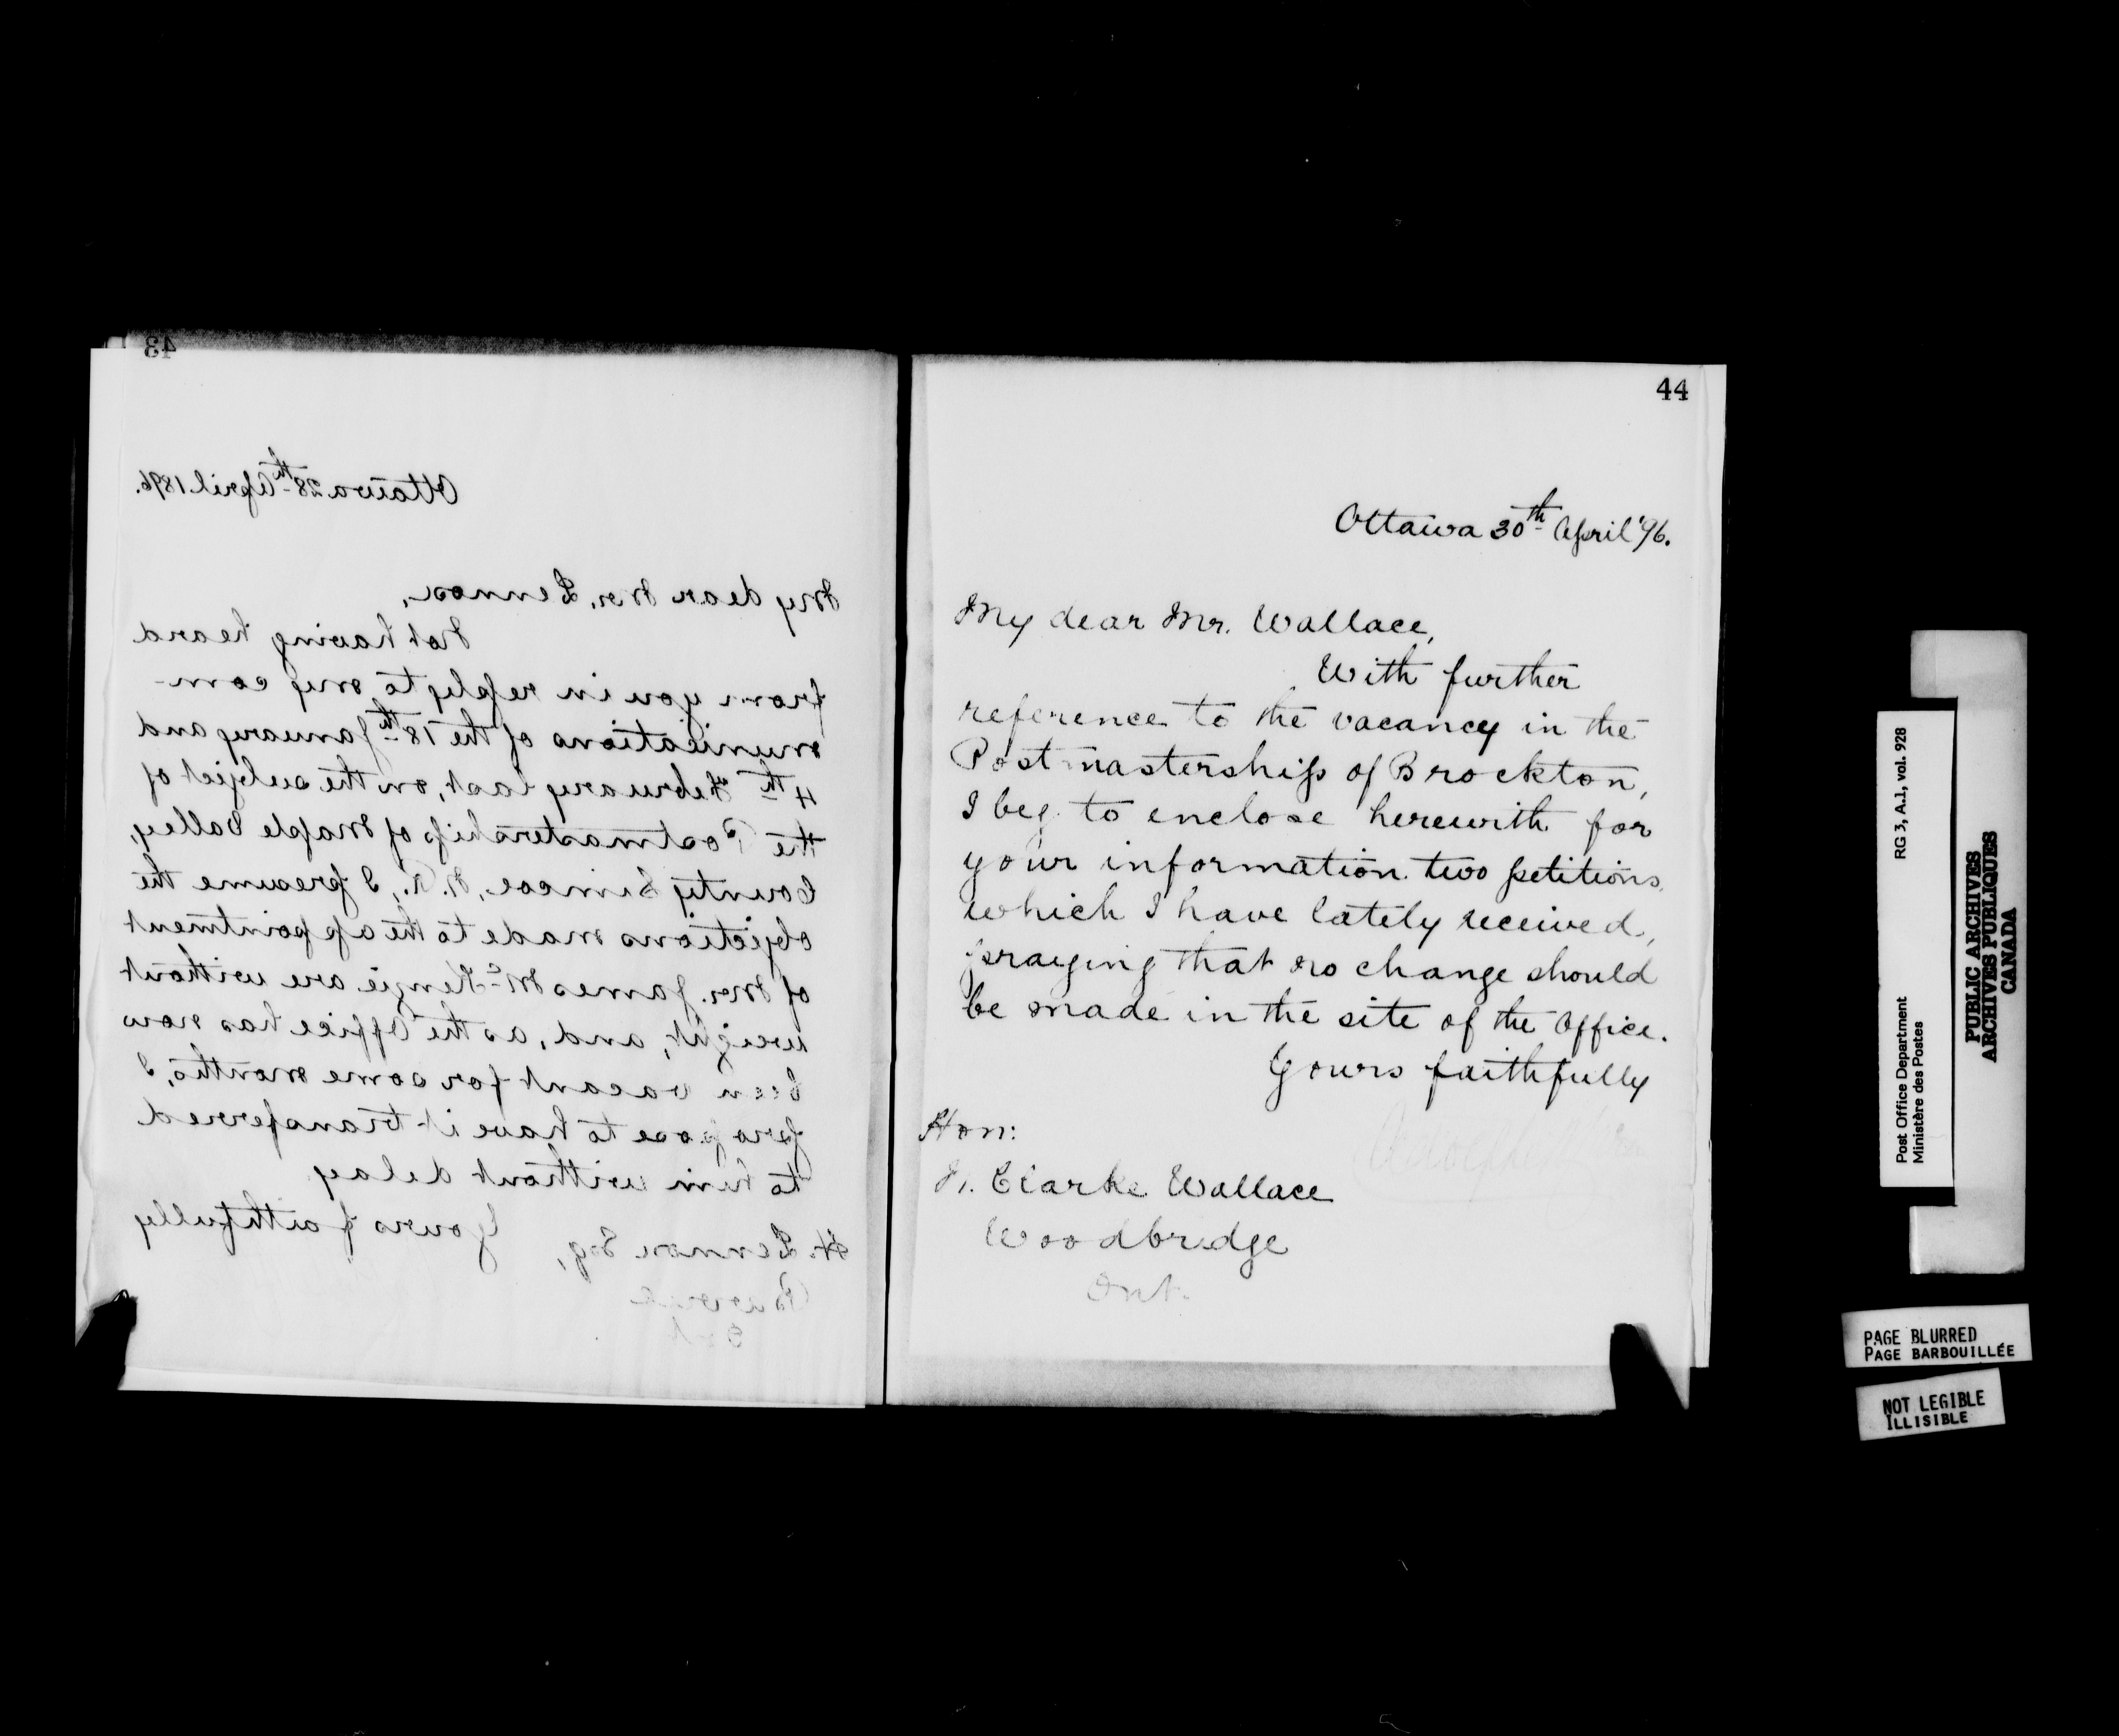 43
Ottawa 28th April 1896.
My dear Mr. Lennox,
Not having heard
from you in reply to my com-
munications of the 18th January and
4th February last, on the subject of
the Postmastership of Maple Valley,
County Simcoe, N.R., I presume the
objections made to the appointment
of Mr. James McKenzie are without
weight, and, as the Office has now
been vacant for some months, I
propose to have it transferred
to him without delay
Yours faithfully
H. Lennox Esq,
Barrie
Ont
44
Ottawa 30th April '96.
My dear Mr. Wallace,
With further
reference to the vacancy in the
Postmastership of Brockton,
I beg to enclose herewith for
your information two petitions,
which I have lately received,
praying that no change should
be made in the site of the Office.
Yours faithfully
Hon:
N. Clarke Wallace
Woodbridge
Ont.
RG 3, A.1, vol. 928
Post Office Department
Ministère des Postes
PUBLIC ARCHIVES
ARCHIVES PUBLIQUES
CANADA
PAGE BLURRED
PAGE BARBOUILLÉE
NOT LEGIBLE
ILLISIBLE